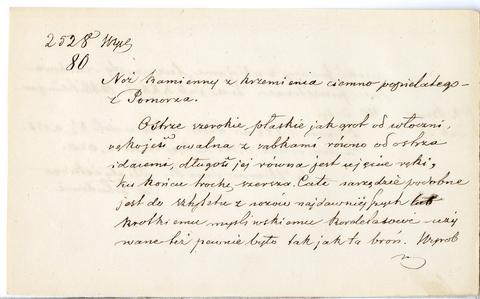 2528 Wyk
80
Noż kamienny z krzemienia ciemno popielatego-
z Pomorza.
Ostrze szerokie płaskie jak grot od włóczni,
rękojeść owalna z ząbkami równo od ostrza
idącemi, długość jej równa jest ujęciu ręki,
ku końcu trochę szersza. Całe narzędzie podobne
jest do sztyletu z wzorów najdawniejszych lub
krotkiemu myśliwskiemu kordelasowi - uży
wane też pewnie było tak jak ta broń. Wyrob